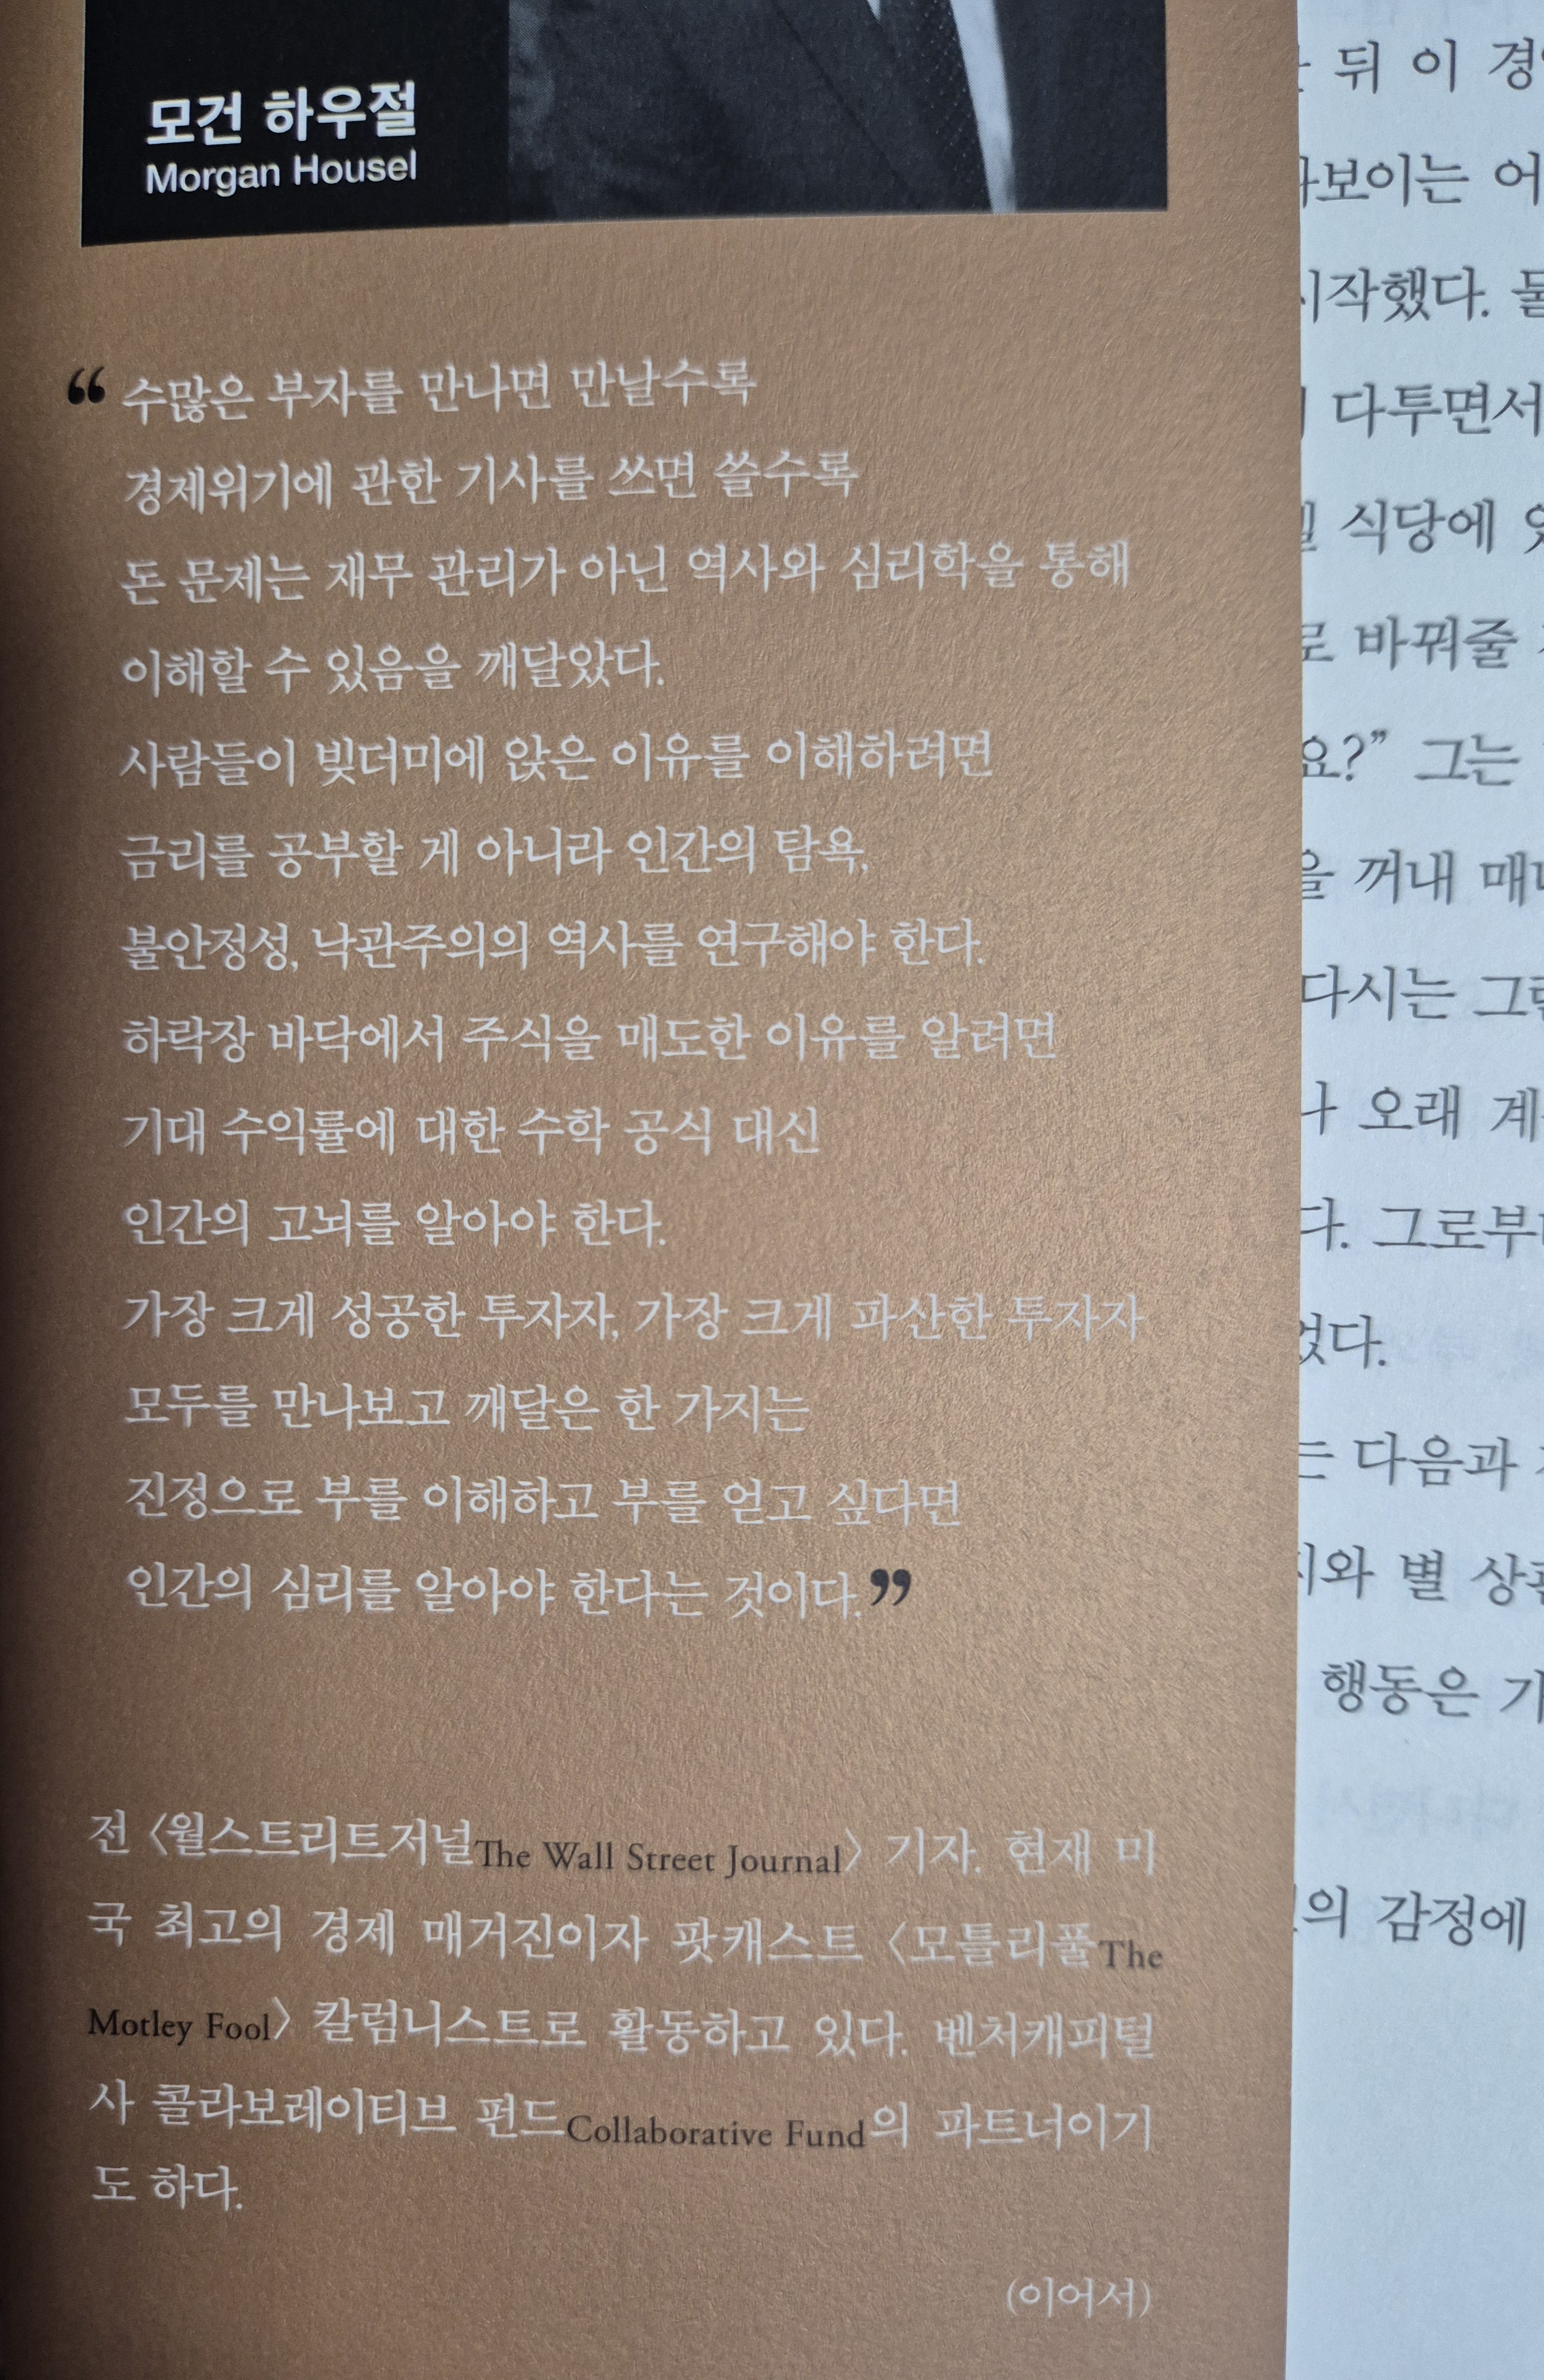 모건 하우절
Morgan Housel
“ 수많은 부자를 만나면 만날수록
경제위기에 관한 기사를 쓰면 쓸수록
돈 문제는 재무 관리가 아닌 역사와 심리학을 통해
이해할 수 있음을 깨달았다.
사람들이 빚더미에 앉은 이유를 이해하려면
금리를 공부할 게 아니라 인간의 탐욕,
불안정성, 낙관주의의 역사를 연구해야 한다.
하락장 바닥에서 주식을 매도한 이유를 알려면
기대 수익률에 대한 수학 공식 대신
인간의 고뇌를 알아야 한다.
가장 크게 성공한 투자자, 가장 크게 파산한 투자자
모두를 만나보고 깨달은 한 가지는
진정으로 부를 이해하고 부를 얻고 싶다면
인간의 심리를 알아야 한다는 것이다.”
전 〈월스트리트저널The Wall Street Journal〉 기자. 현재 미
국 최고의 경제 매거진이자 팟캐스트 〈모틀리풀The
Motley Fool〉 칼럼니스트로 활동하고 있다. 벤처캐피털
사 콜라보레이티브 펀드Collaborative Fund의 파트너이기
도 하다.
(이어서)
뒤 이
보이는
시작했다.
다투면서
식당에
바꿔줄
요?” 그는
을 꺼내
다시는
오래
다. 그로부
었다.
다음과
와 별
행동은
의 감정에